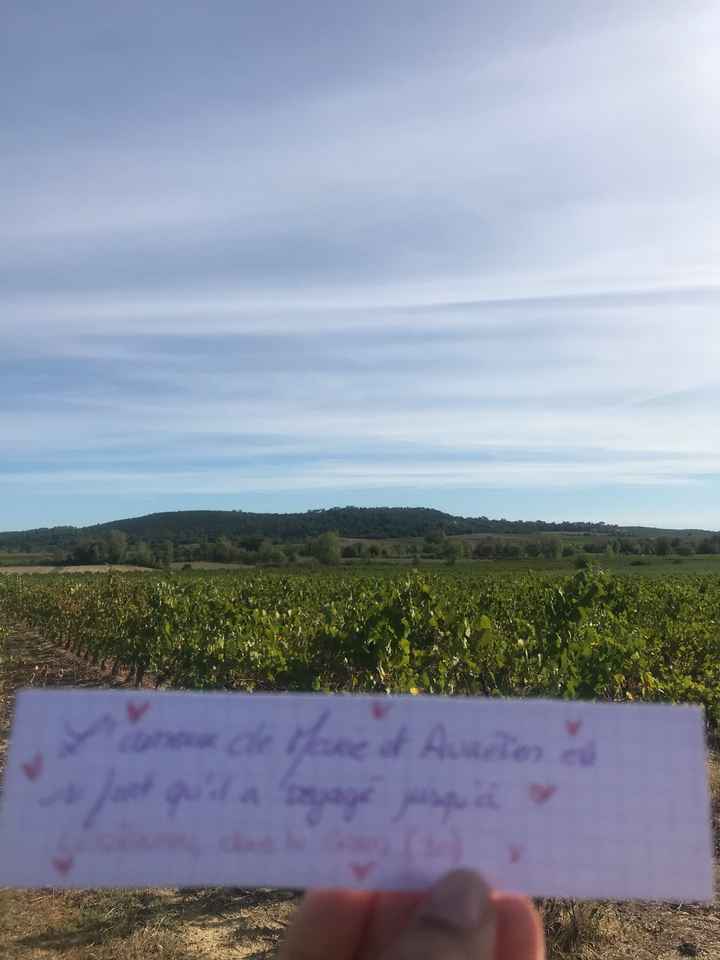 L'amour de Marie et Aurélien est
si fort qu'il a voyagé jusqu'à
dans le Gard (30)